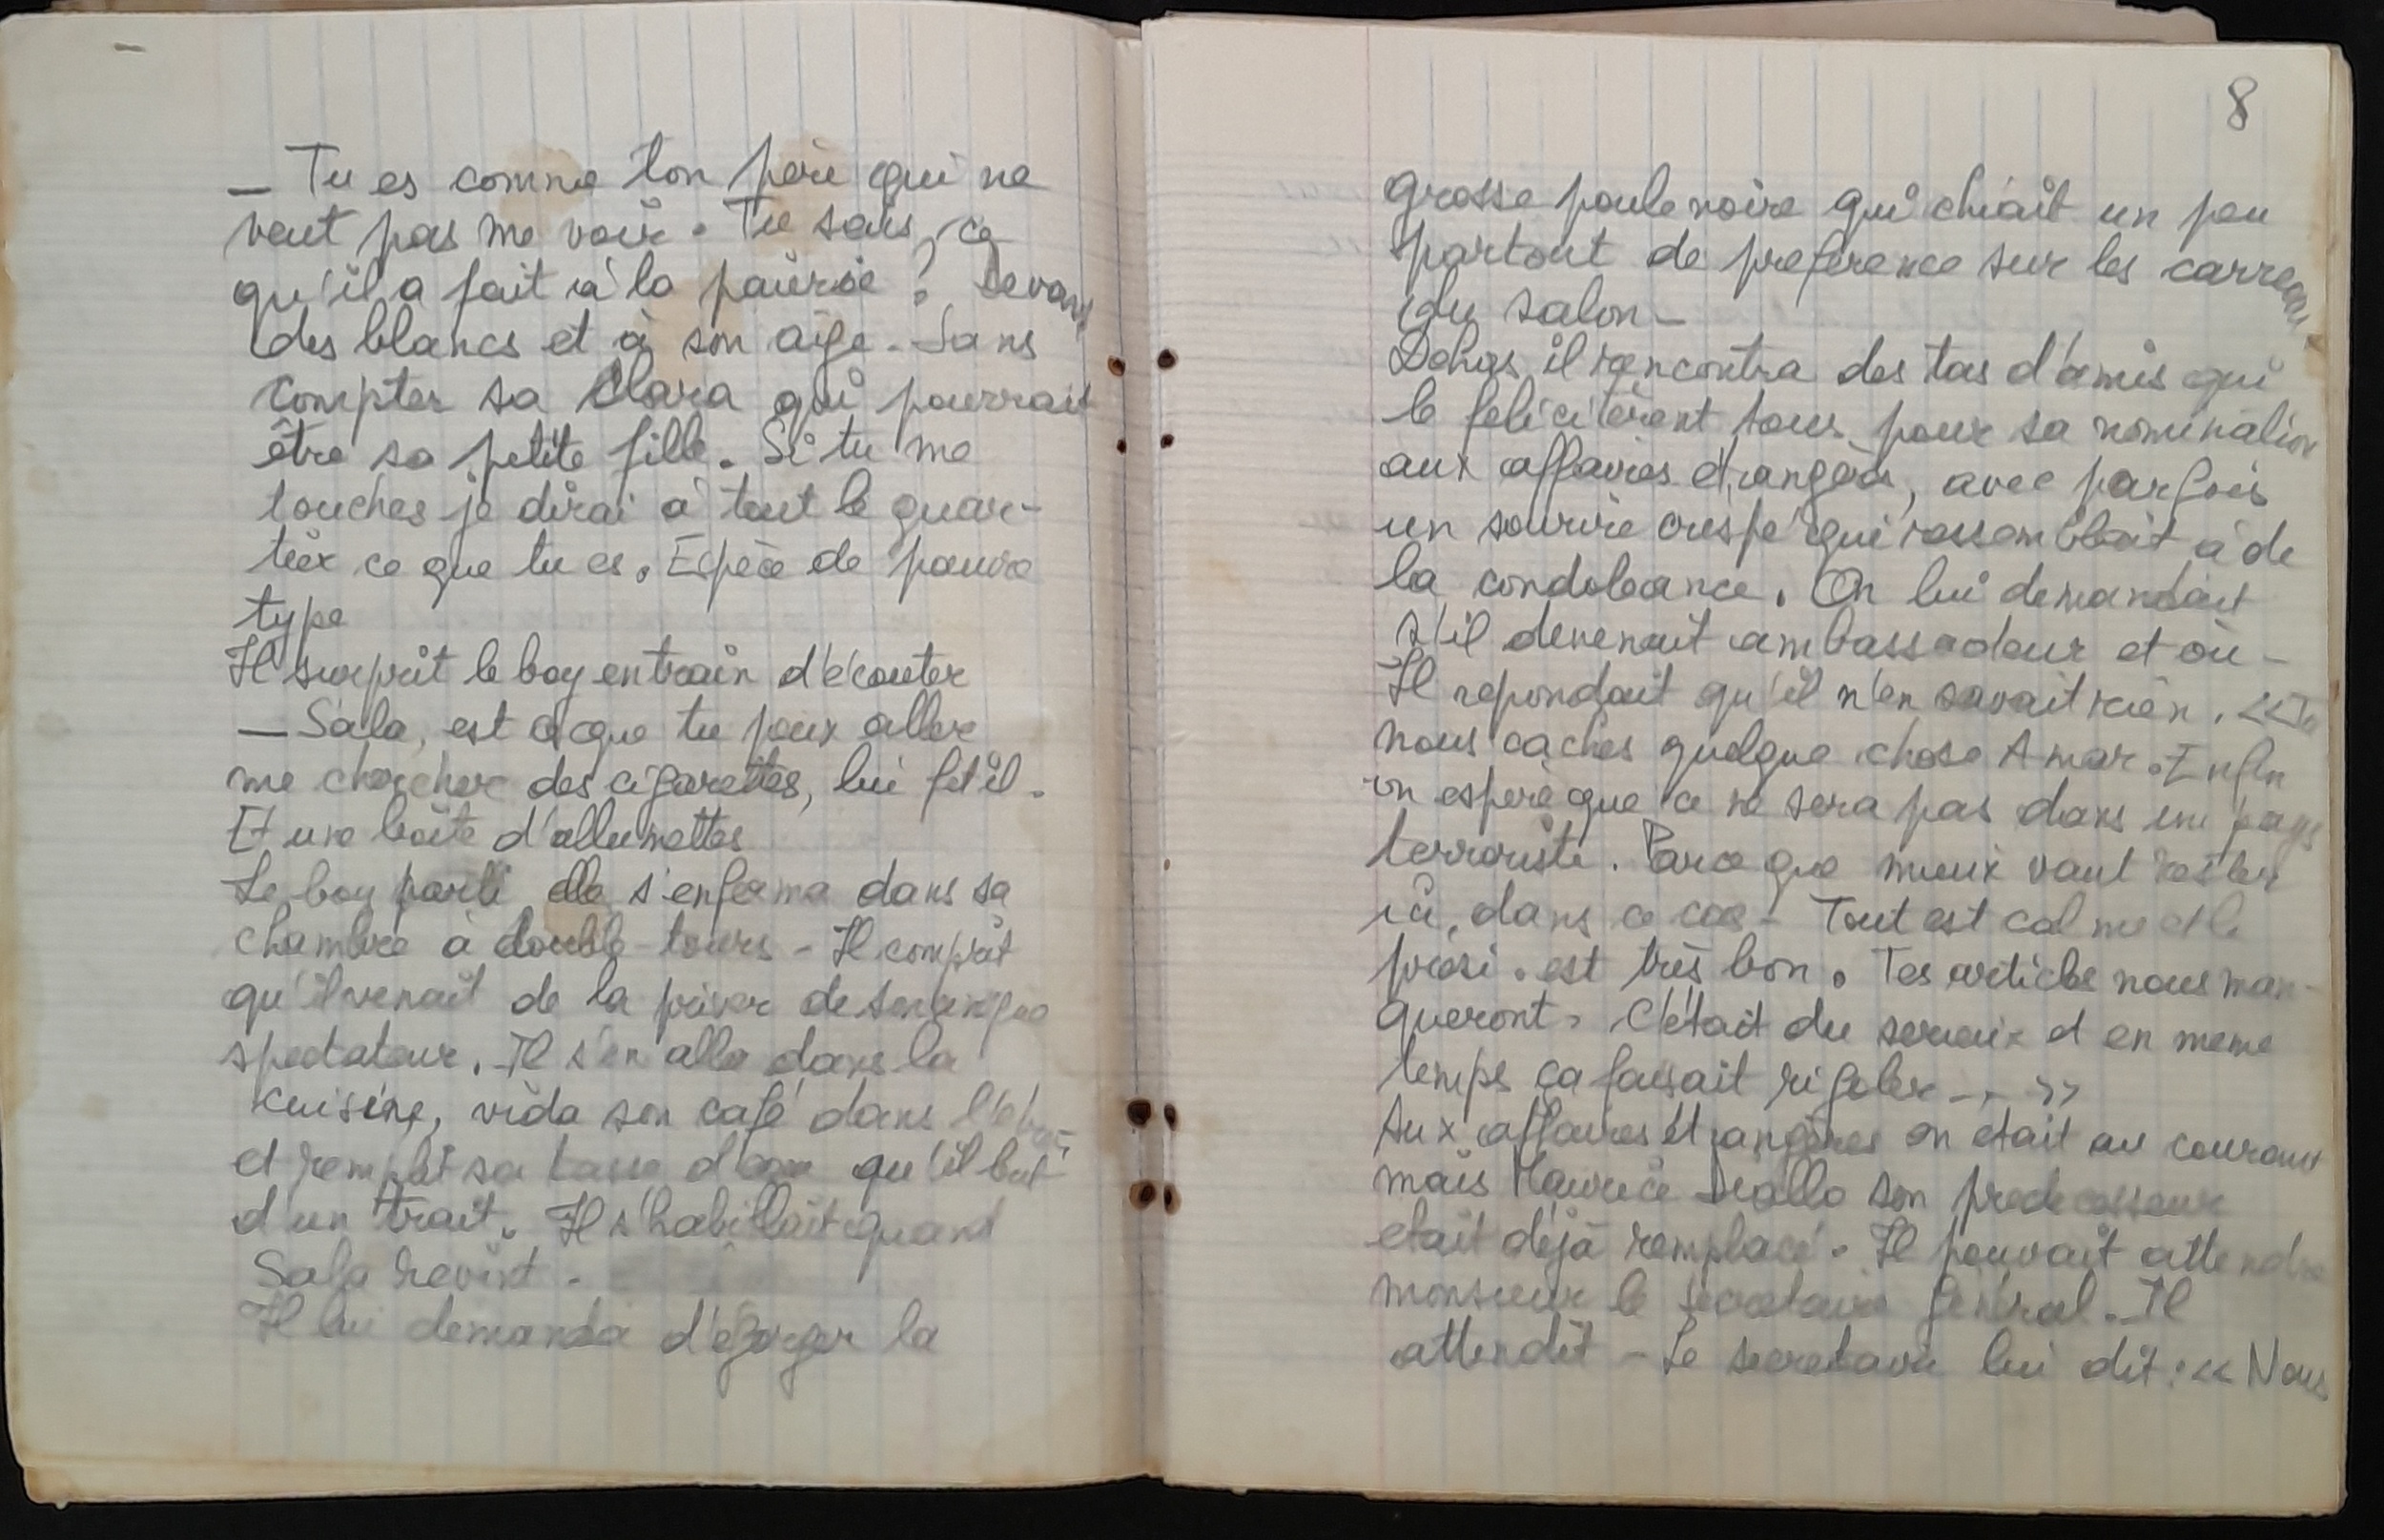 — Tu es comme ton père qui ne
veut pas me voir. Tu sais, ce
qu'il a fait à la mairie ? Devant
des blancs et à son âge. Sans
compter sa Clara qui pourrait
être sa petite fille. Si tu me
touches je dirai à tout le quar-
tier ce que tu es. Espèce de pauvre
type
Il surprit le boy entrain d'écouter
— Sala, est ce que tu peux aller
me chercher des cigarettes, lui fit il.
Et une boîte d'allumettes
Le boy parti elle s'enferma dans sa
chambre à double tours - Il comprit
qu'il venait de la priver de son unique
spectateur. Il s'en alla dans la
cuisine, vida son café dans l'évier
et remplit sa tasse d'eau qu'il but
d'un trait. Il s'habillait quand
Sala revint.
Il lui demanda d'égorger la
8
grosse poule noire qui chiait un peu
partout de preference sur les carreaux
du salon -
Dehors il rencontra des tas d'amis qui
le felicitèrent tous pour sa nomination
aux affaires étrangères, avec parfois
un sourire crispé qui ressemblait à de
la condoleance. On lui demandait
s'il devenait ambassadeur et où -
Il repondait qu'il n'en savait rien. << Tu
nous caches quelque chose Amar. Enfin
on espère que ce ne sera pas dans un pays
terroriste. Parce que mieux vaut rester
ici, dans ce cas - Tout est calme et le
prési. est très bon. Tes articles nous man-
queront. C'était du serieux et en meme
temps ça faisait rigoler - . >>
Aux affaires étrangères on etait au courant
mais Maurice Diallo son predecesseur
etait déjà remplacé. Il pouvait attendre
monsieur le secretaire général. Il
attendit - Le secretaire lui dit : << Nous